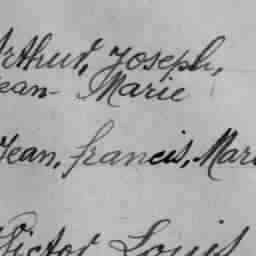 Arthur, Joseph,
Jean-Marie
Jean, francis, Mari
Victor Louis